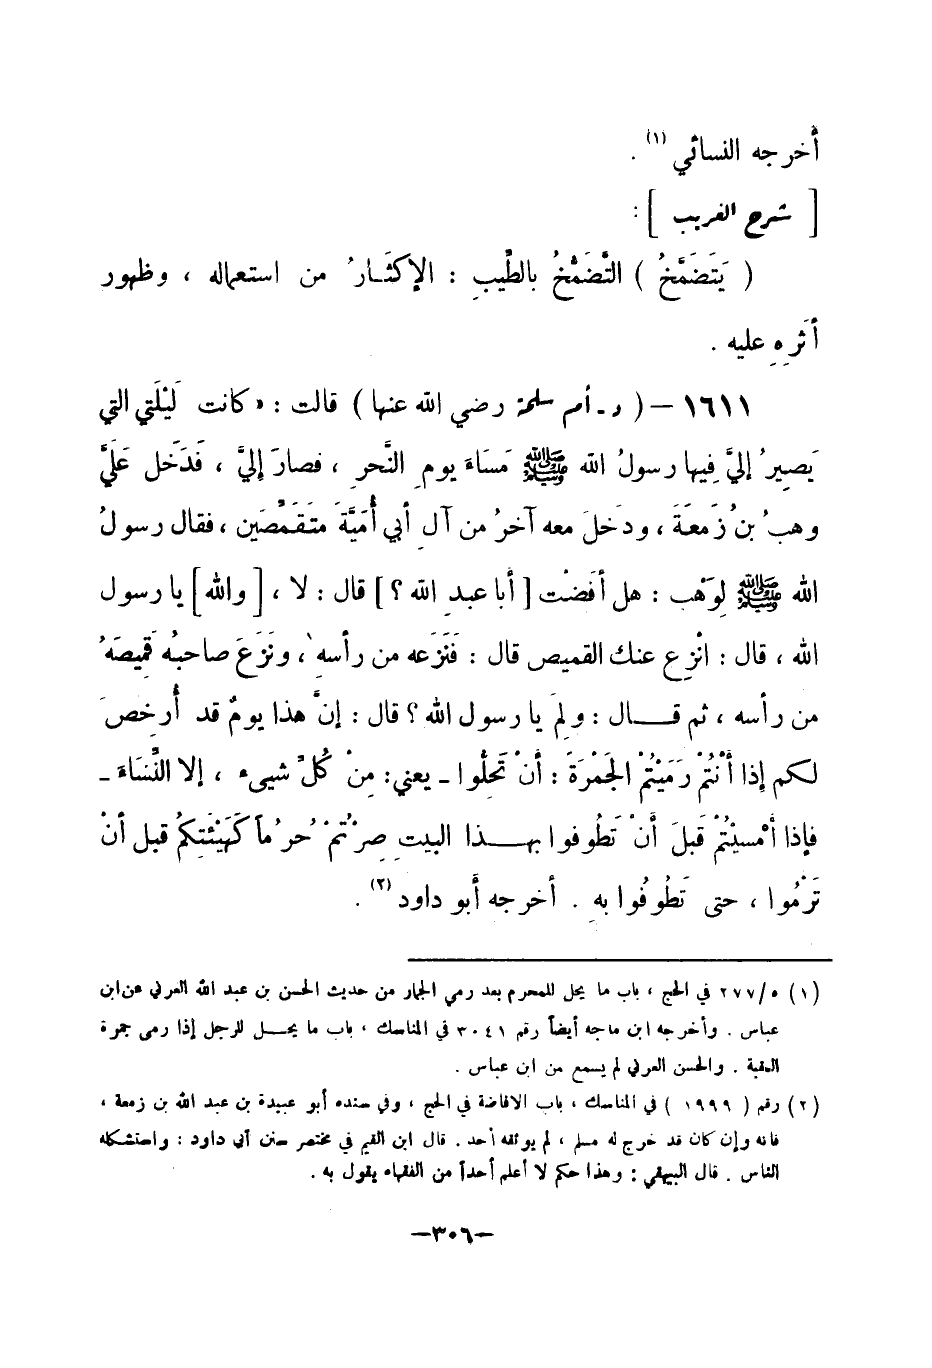 أخرجه النسائي (١) .
[ شرح الغريب ] :
( يَتَضَمَّخُ ) التَّضَمُّخُ بالطِّيبِ : الإكثَـارُ من استعماله ، وظهور
أثَرِهِ عليه .
١٦١١ – ( د ـ أم سلمة رضي الله عنها ) قالت : « كانت لَيْلَتي التي
يَصِيرُ إليَّ فِيها رسولُ الله ﷺ مَسَاءَ يومِ النَّحرِ ، فصارَ إليَّ ، فَدَخَل عَلَيَّ
وهبُ بنُ زَمعَةَ ، ودَخلَ معه آخرُ من آلِ أبي أُمَيَّةَ متَقَمِّصَين ، فقال رسولُ
الله ﷺ لِوَهْب : هل أفَضْت [ أبا عبدِ الله ؟ ] قال : لا ، [ والله ] يا رسول
الله ، قال : انْزِع عنك القميص قال : فَنَزَعه من رأسهِ ، ونَزَعَ صاحبُه قميصَهُ
من رأسه ، ثم قـــال : ولِمَ يا رسول الله ؟ قال : إنَّ هذا يومٌ قد أُرخِصَ
لكم إذا أنْتُمْ رَمَيْتُمْ الجَمْرَةَ : أنْ تَحِلُّوا ـ يعني : مِنْ كُلِّ شييء ، إلا النِّسَاءَ ـ
فإذا أمْسَيْتُمْ قَبلَ أنْ تَطُوفوا بهـــذا البيتِ صِرْتُمْ حُرُماً كَهَيْئَتِكمُ قبل أنْ
تَرْمُوا ، حتى تَطُوفُوا بهِ . أخرجه أبو داود (٢) .
(١) ٢٧٧/٥ في الحج ، باب ما يحل للمحرم بعد رمي الجمار من حديث الحسن بن عبد الله العرني عن ابن
عباس . وأخرجه ابن ماجه أيضاً رقم ٣٠٤١ في المناسك ، باب ما يحـــل للرجل إذا رمى جمرة
العقبة . والحسن العرني لم يسمع من ابن عباس .
(٢) رقم ( ١٩٩٩ ) في المناسك ، باب الافاضة في الحج ، وفي سنده أبو عبيدة بن عبد الله بن زمعة ،
فانه وإن كان قد خرج له مسلم ، لم يوثقه أحد . قال ابن القيم في مختصر سنن أبي داود : واستشكله
الناس . قال البيهقي : وهذا حكم لا أعلم أحداً من الفقهاء يقول به .
—٣٠٦—